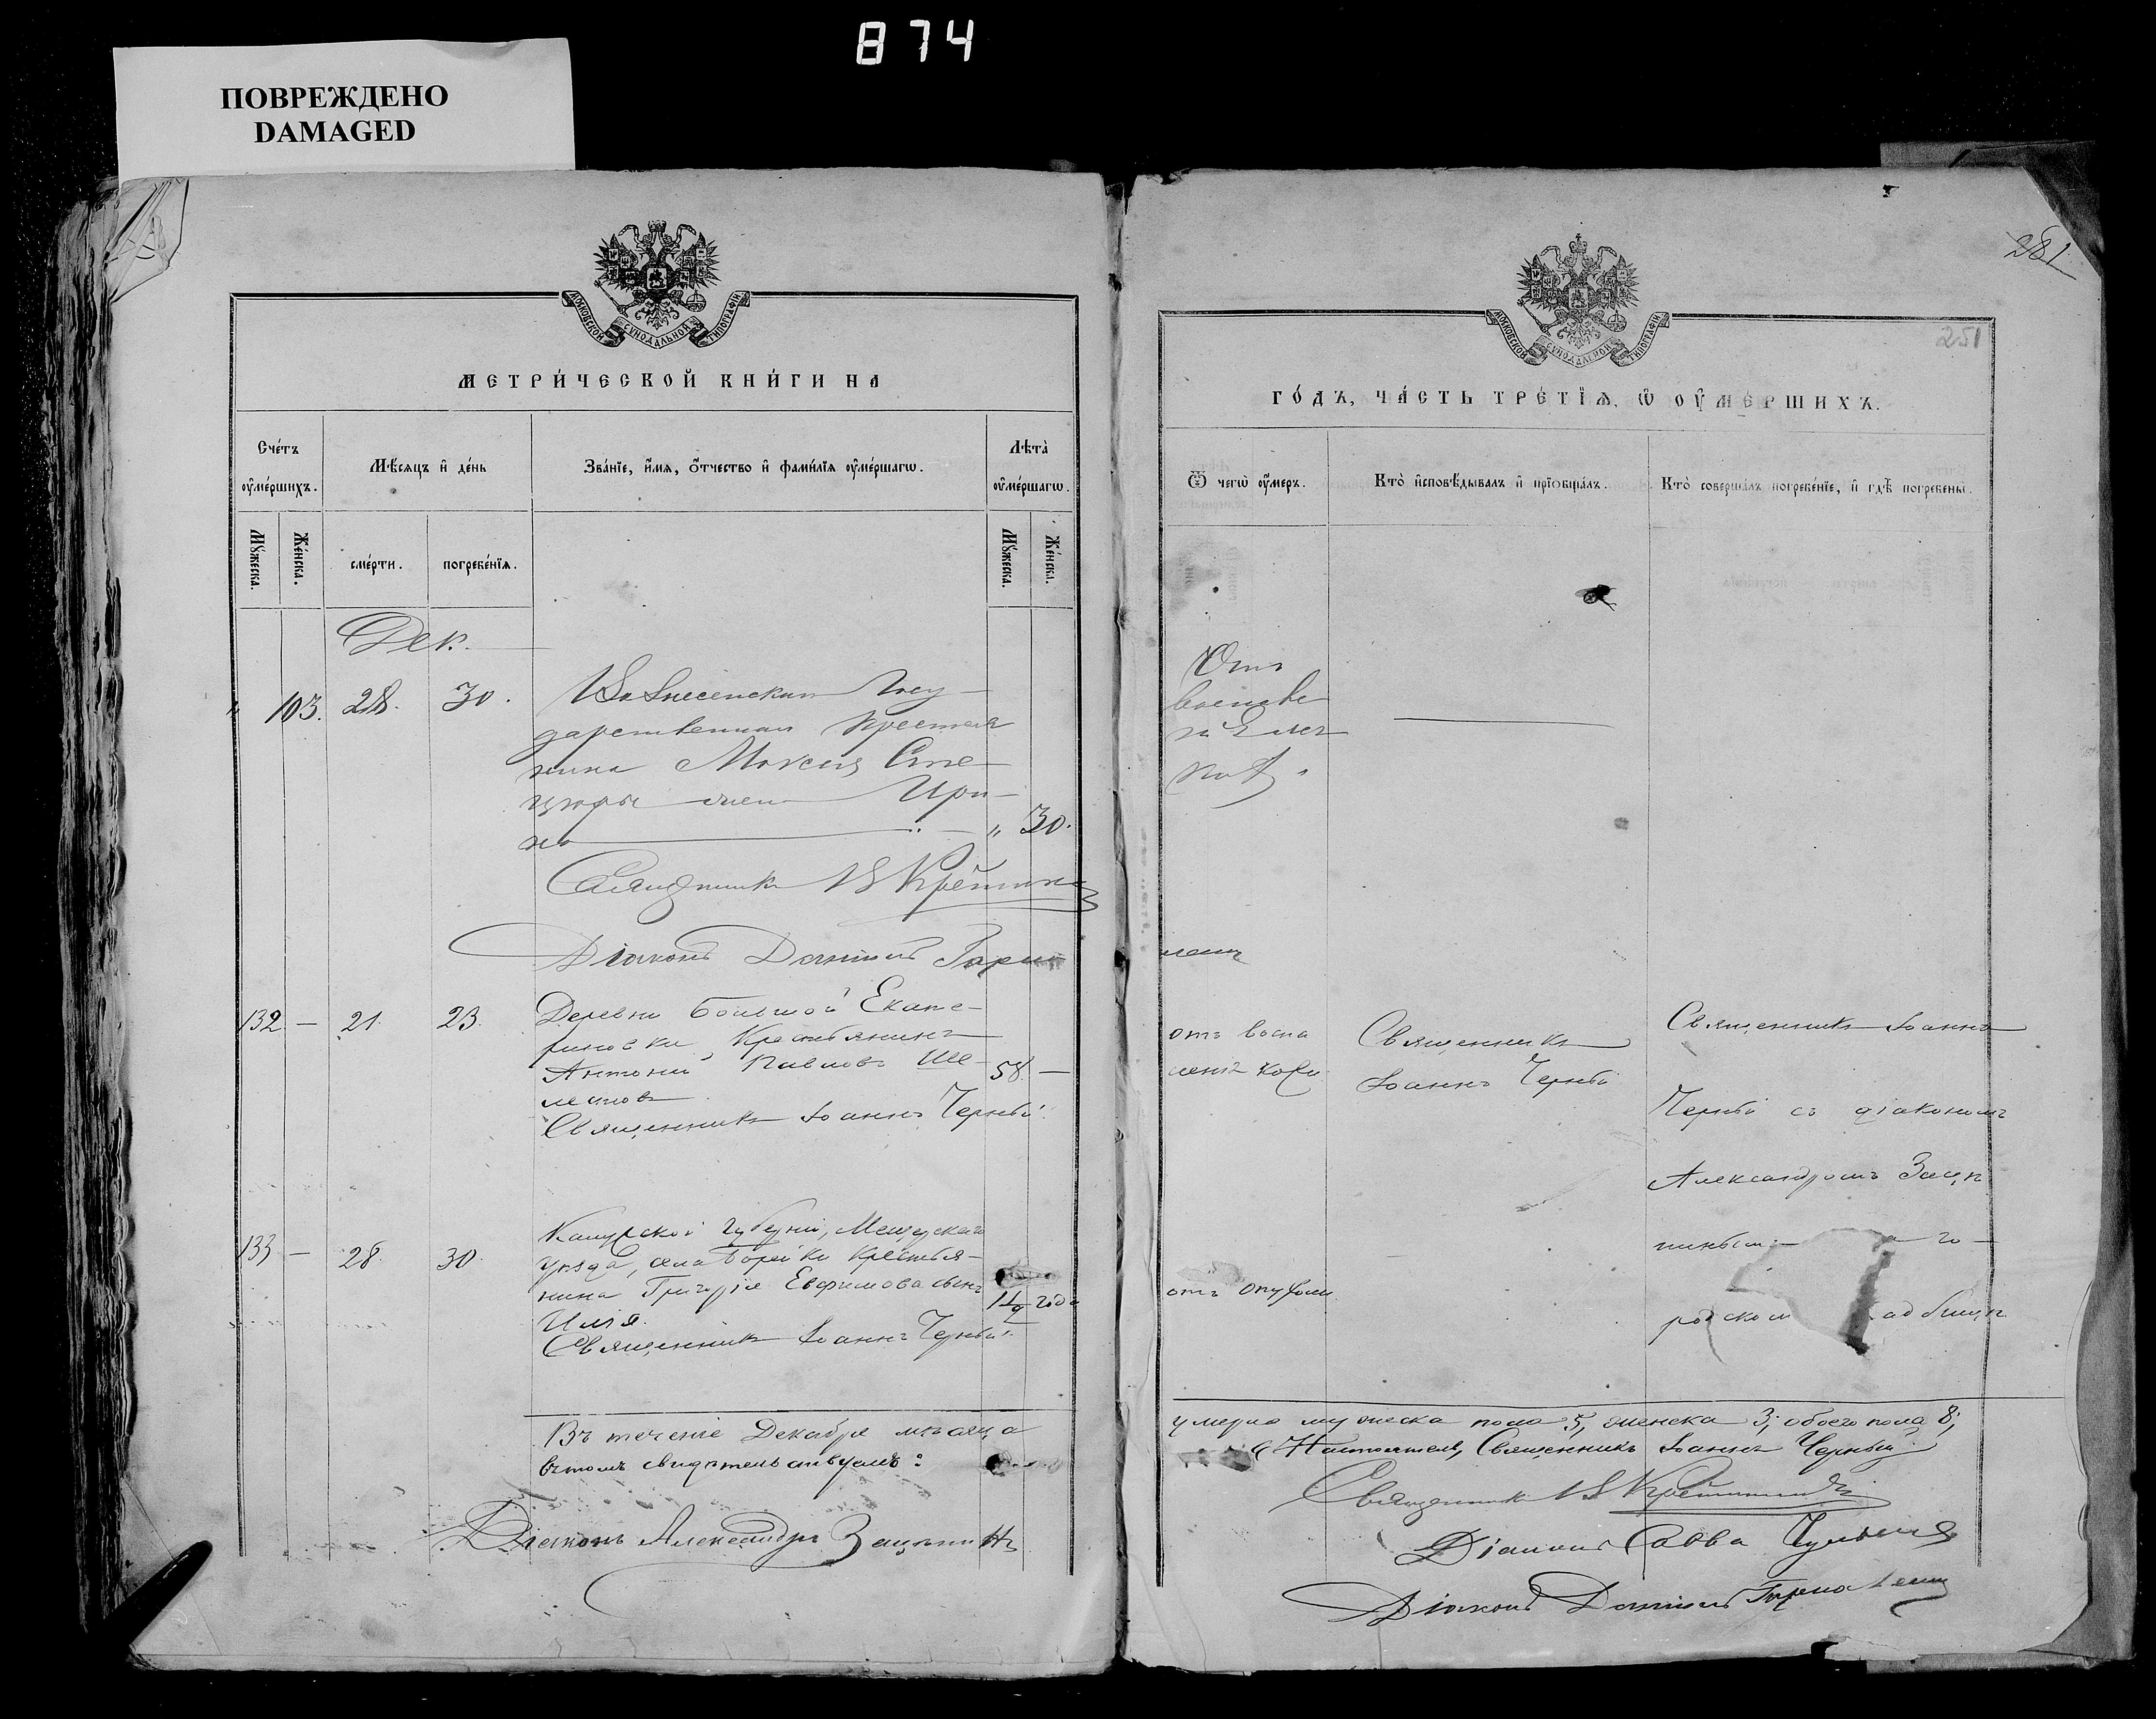 874
ПОВРЕЖДЕНО
DAMAGED
281
251
МОСКОВСКОЙ СѴНОДАЛЬНОЙ ТИПОГРАФІИ
МЕТРИ́ЧЕСКОЙ КНИ́ГИ НА
Сче́тъ ᲂу҆ме́ршихъ.
Мѣ́сяцъ и҆ де́нь
Зва́нїе, и҆́мѧ, ѻ҆́тчество и҆ фами́лїѧ ᲂу҆ме́ршагѡ.
Лѣта̀ ᲂу҆ме́ршагѡ.
Мꙋ́жеска.
Же́нска.
сме́рти.
погребе́нїѧ.
Мꙋ́жеска.
Же́нска.
Дек.
103. 28. 30.
Вознесенски Госу-
дарственнаи крестья
нина Моисея Сте-
жена Ири-
на " 30.
Священникъ В Крет
Діаконъ Даниилъ Гарма
132 — 21. 23.
Деревни Большой Екате-
риновки, Крестьянинъ
Антоній Павловъ Ше-
58. —
лестовъ
Священникъ Іоаннъ Черный.
133 — 28. 30.
Калужской губерніи, Мещерскаго
уѣзда, села Борейки крестья-
нина Григорія Евфимова сынъ
1 1/2 года
Илія.
Священникъ Іоаннъ Черный.
Въ теченіе Декабря мѣсяца
въ томъ свидѣтельствуемъ:
Діаконъ Александръ Зацѣпинъ
МОСКОВСКОЙ СѴНОДАЛЬНОЙ ТИПОГРАФІИ
ГО́ДЪ, ЧА́СТЬ ТРЕ́ТЇѦ, Ѡ҆ ОУ҆МЕ́РШИХЪ.
Ѿ чегѡ̀ ᲂу҆́меръ.
Кто̀ и҆сповѣ́дывалъ и҆ прїѡбща́лъ.
Кто̀ соверша́лъ погребе́нїе, и҆ гдѣ̀ погребены̀.
Отъ
воспале
нія лег
кихъ.
ленъ
отъ воспа
ленія кожи
Священникъ
Іоаннъ Черный
Священникъ Іоаннъ
Черный съ діакономъ
Александромъ Зацѣ
пинымъ — на го-
родскомъ кладбищѣ
отъ опухоли
умерло мужеска пола 5, женска 3, обоего пола 8;
Настоятель, Священникъ Іоаннъ Черный
Священникъ В Крет
Діаконъ Савва
Діаконъ Даниилъ Гармаленъ